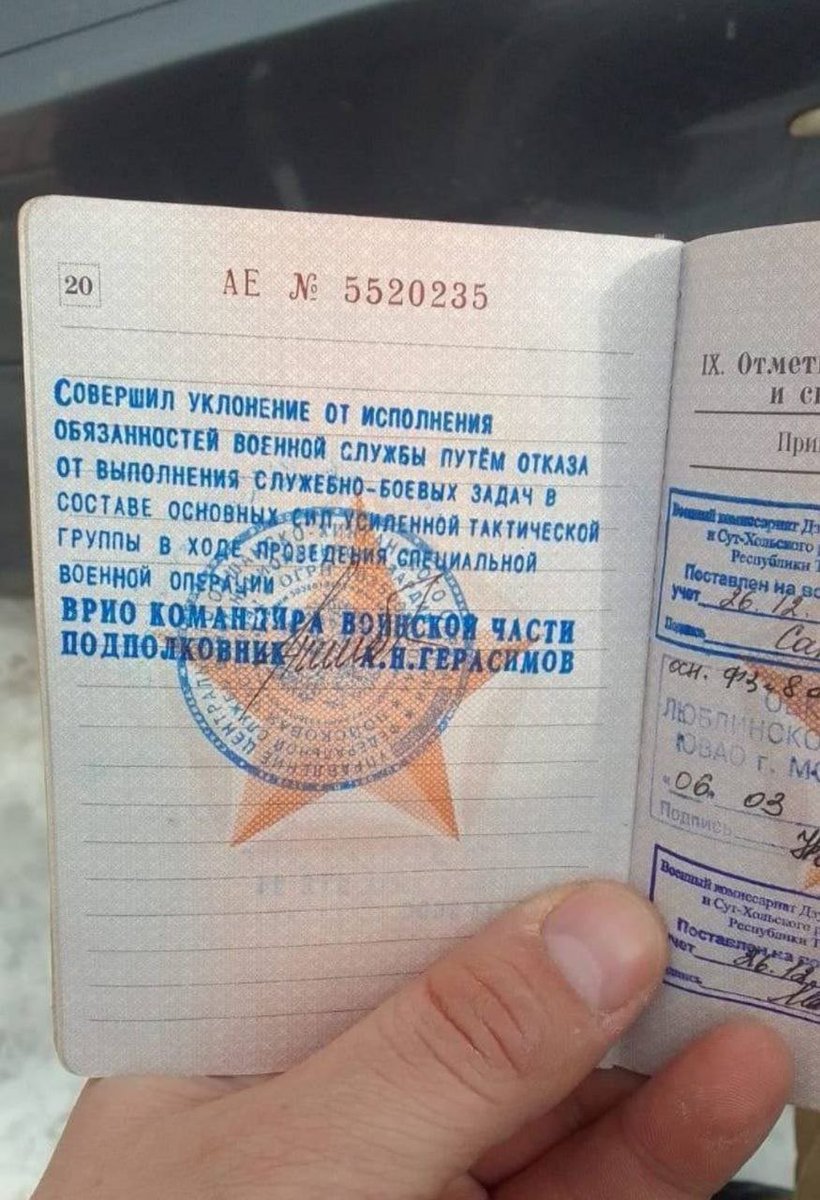 20
АЕ № 5520235
Совершил уклонение от исполнения
обязанностей военной службы путём отказа
от выполнения служебно-боевых задач в
составе основных сил усиленной тактической
группы в ходе проведения специальной
военной операции
ВРИО КОМАНДИРА ВОИНСКОЙ ЧАСТИ
ПОДПОЛКОВНИК А.Н.ГЕРАСИМОВ
IX. Отмет
и с
При
Военный комиссариат Дз
и Сут-Хольского р
Республики Т
Поставлен на во
учет 26.12.
Подпись
осн. ФЗ
ЛЮБЛИНСКО
ЮВАО г. МО
"06" 03
Подпись
Военный комиссариат Дз
и Сут-Хольского р
Республики Т
Поставлен на
учет 26.12